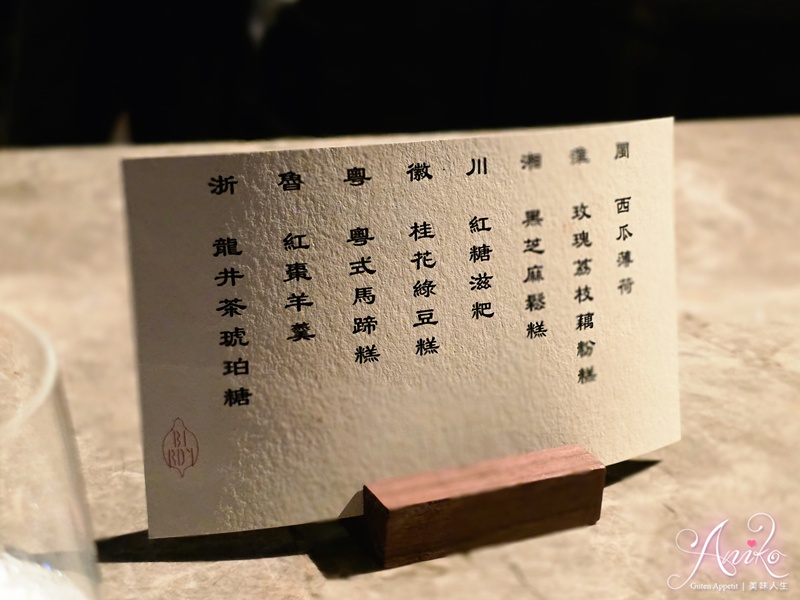 閩 西瓜薄荷
淮 玫瑰荔枝藕粉糕
湘 黑芝麻鬆糕
川 紅糖滋粑
徽 桂花綠豆糕
粵 粵式馬蹄糕
魯 紅棗羊羹
浙 龍井茶琥珀糖
BI
RDY
Aniko
Guten Appetit | 美味人生